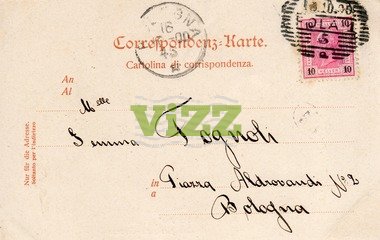 Correspondenz-Karte.
Cartolina di corrispondenza.
An
Al
Melle
Gemma Fognoli
in
a
Piazza Aldrovandi No 2
Bologna
Nur für die Adresse.
Soltanto per l'indirizzo
VIZZ
POLA
10
10